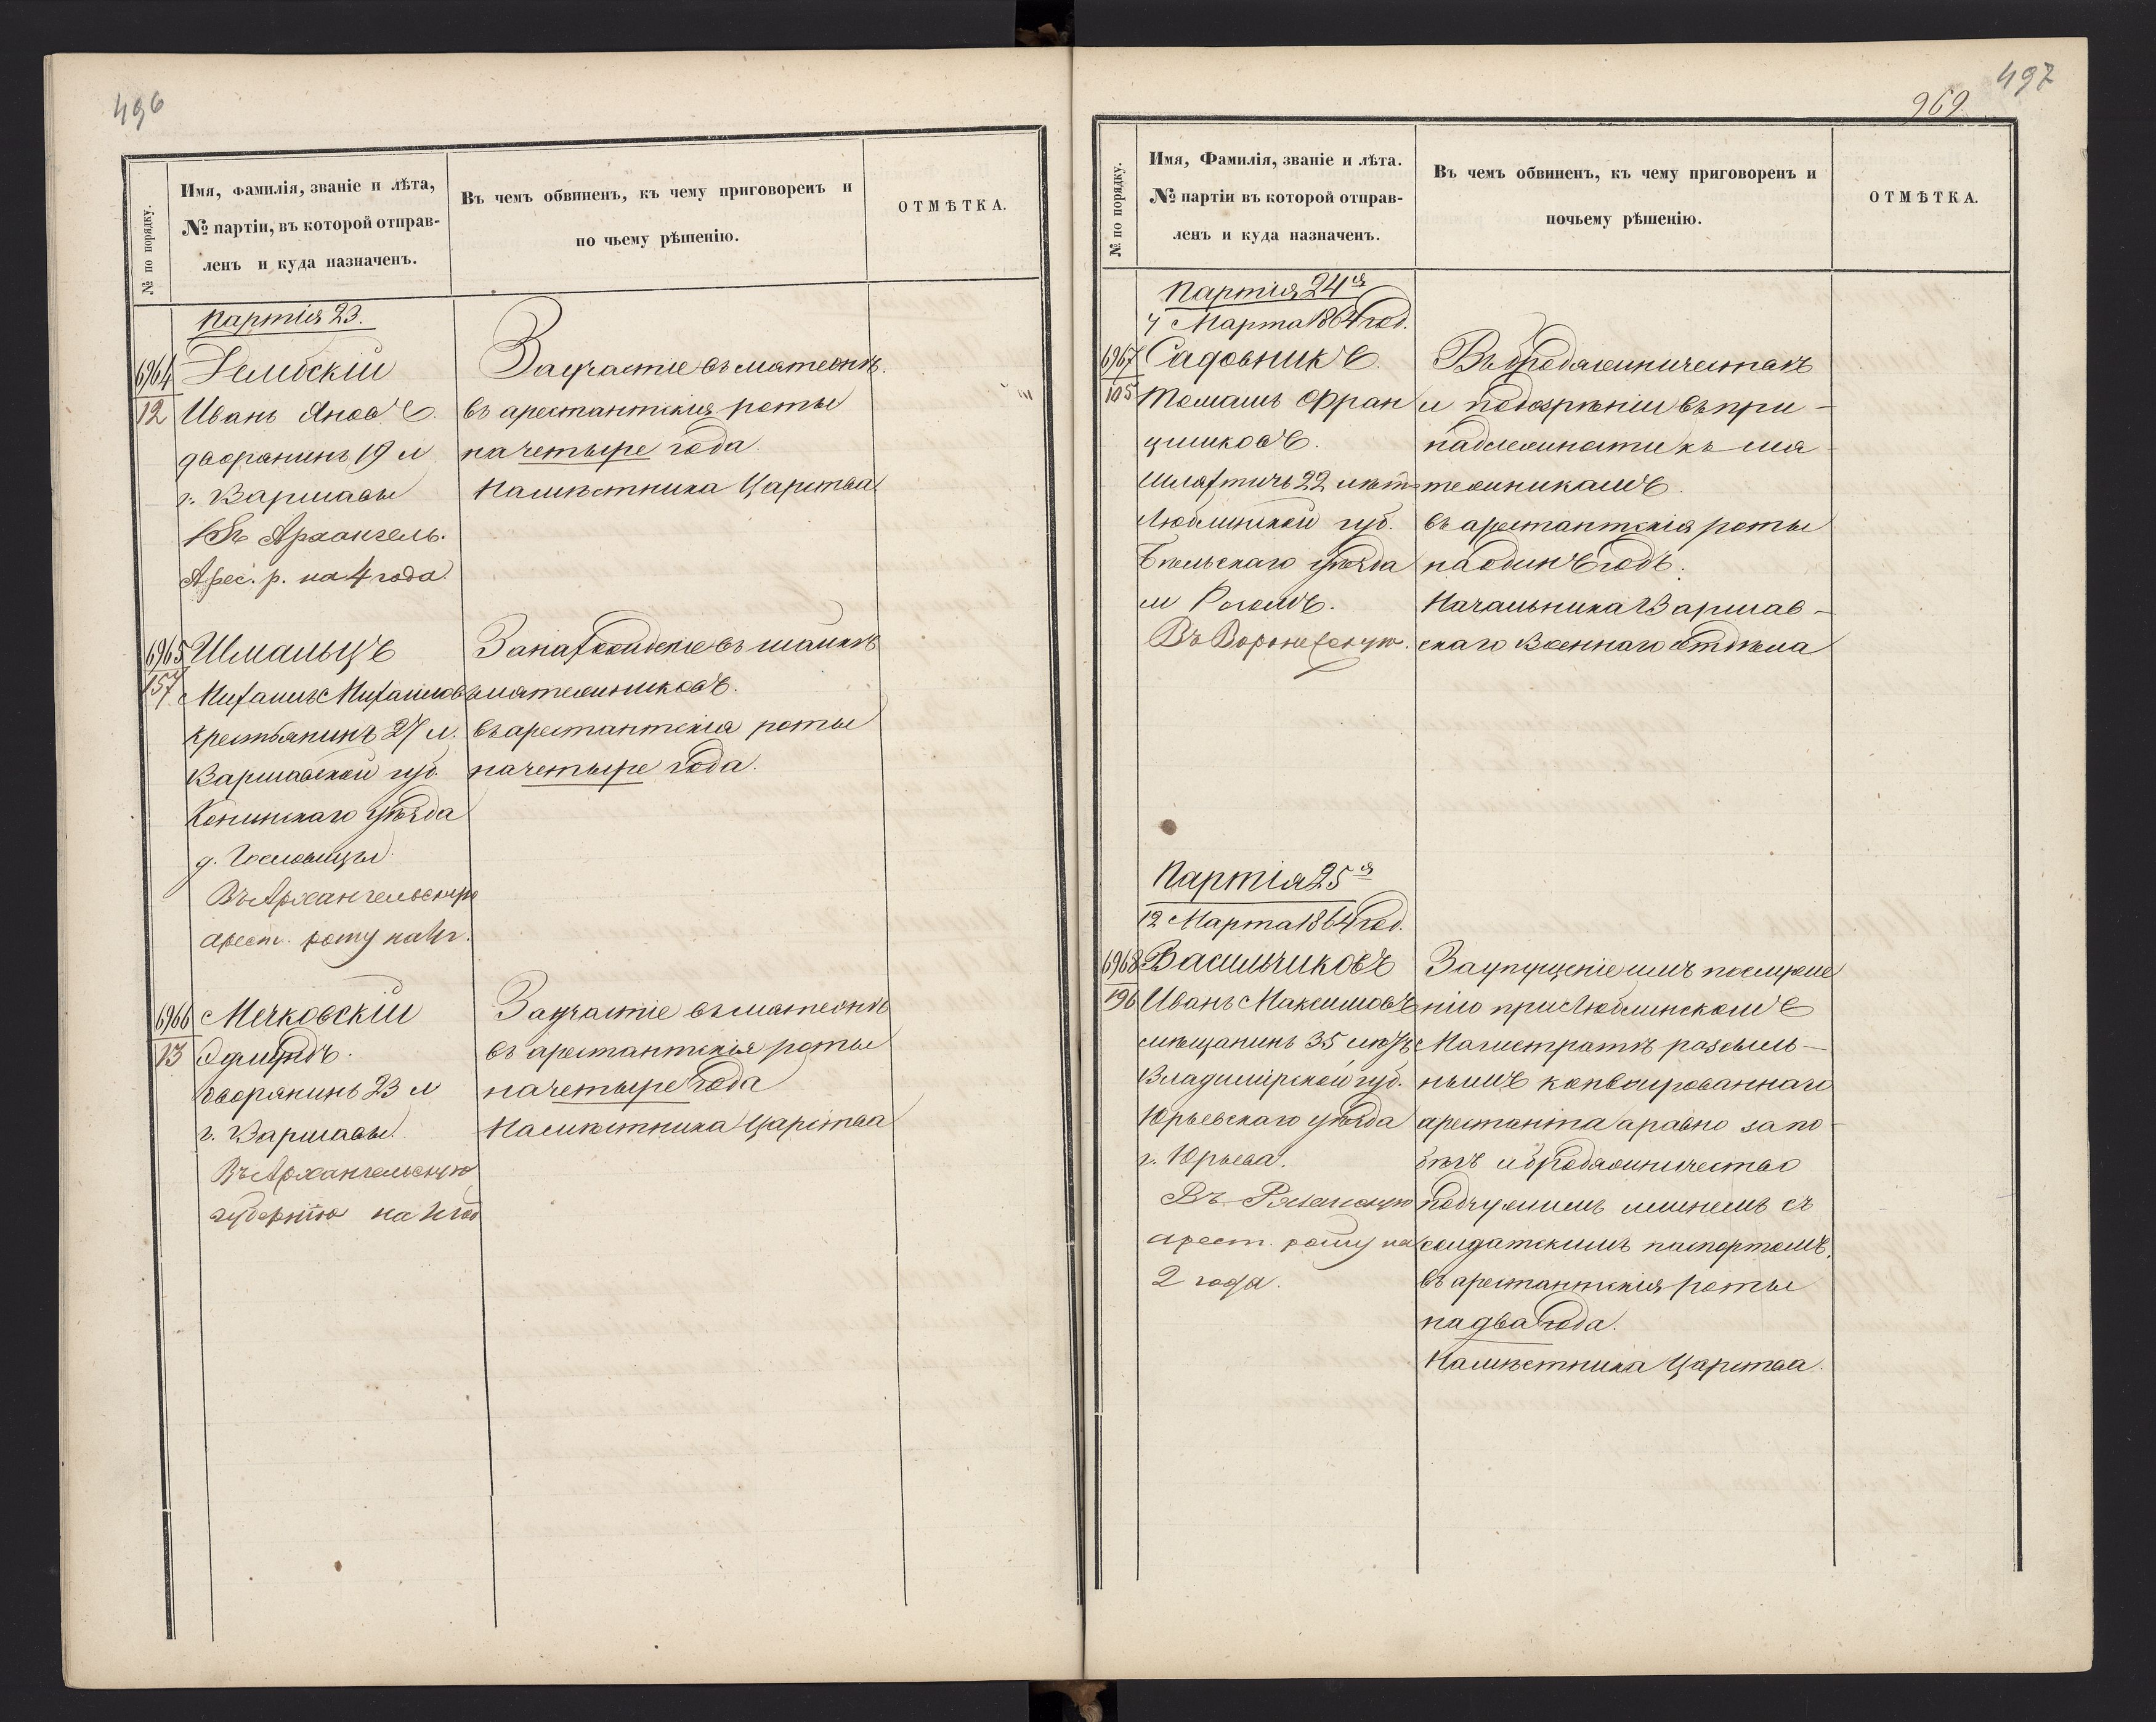 496
№ по порядку.
Имя, Фамилія, званіе и лѣта,
№ партіи, въ которой отправ-
ленъ и куда назначенъ.
Въ чемъ обвиненъ, къ чему приговоренъ и
по чьему рѣшенію.
ОТМѢТКА.
Партія 23.
6964
12
Иванъ Яновъ.
дворянинъ 19 л
г. Варшавы
Въ Архангель.
Арес. р. на 4 года.
За участіе въ мятежѣ.
въ арестантскія роты
на четыре года.
Намѣстника Царства
6965
157
Шмальцъ
Михаилъ Михаиловъ
крестьянинъ 27 л.
Варшавской губ.
Конинскаго уѣзда
д.
Въ Архангельскую
арест. роту на 4 г.
За нахожденіе въ шайкѣ
мятежниковъ.
въ арестантскія роты
на четыре года.
6966
13
Мечковскій
Эдмундъ.
дворянинъ 23 л
г. Варшавы.
Въ Архангельскую
губернію на 4 год
За участіе въ мятежѣ
въ арестантскія роты
на четыре года
Намѣстника Царства
497
969.
№ по порядку.
Имя, Фамилія, званіе и лѣта.
№ партіи въ которой отправ-
ленъ и куда назначенъ.
Въ чемъ обвиненъ, къ чему приговоренъ и
почьему рѣшенію.
ОТМѢТКА.
Партія 24я
Марта 1864 год.
6967
105
Садовникъ.
Томашъ Фран
цишковъ.
Шляхтичъ 22 лѣт
Люблинской губ.
Бѣльскаго уѣзда
м
Въ Воронежскую.
Въ бродяжничествѣ
и подозрѣніи въ при-
надлежности къ мя-
тежникамъ.
въ арестантскія роты
на одинъ годъ.
Начальника Варшав-
скаго Военнаго Отдѣла
Партія 25я
12 Марта 1864 год.
6968
196
Васильчиковъ
Иванъ Максимовъ
мѣщанинъ 35 лѣтъ
Владимірской губ.
Юрьевскаго уѣзда
г. Юрьева.
Въ Рязанскую
арест. роту на
2 года.
За упущеніе имъ по служе
нію при Люблинскомъ
Магистратѣ разсыль-
нымъ конвоированнаго
арестанта а равно за по-
бѣгъ и бродяжничество
подъ чужимъ именемъ съ
солдатскимъ паспортомъ.
въ арестантскія роты
на два года.
Намѣстника Царства.